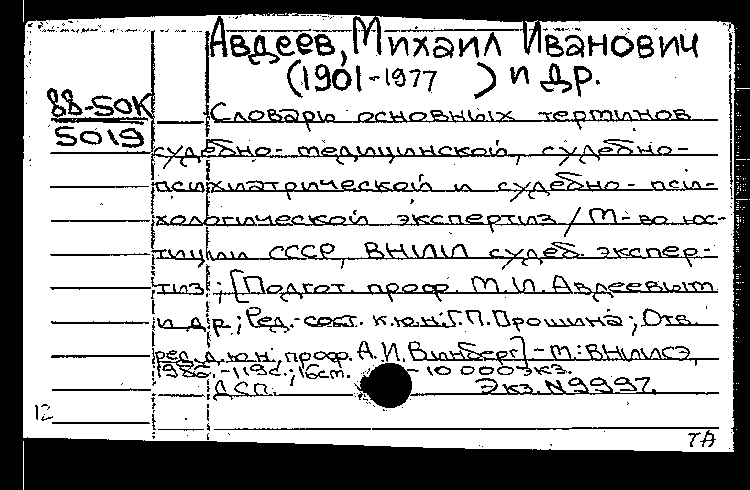 Авдеев, Михаил Иванович
(1901-1977) и др.
88-50К
5019
Словарь основных терминов
судебно-медицинской, судебно-
психиатрической и судебно-пси-
хологической экспертиз / М-во юс-
тиции СССР, ВНИИ судеб. экспер-
тиз; [Подгот. проф. М.И. Авдеевым
и др.; Ред.-сост. к.ю.н. Г.П. Прошина; Отв.
ред. д.ю.н., проф. А.И. Винберг] - М.: ВНИИСЭ,
1986. - 119 с.; 16 см. - 10 000 экз.
ДСП. Экз. N 9997.
12
ТА